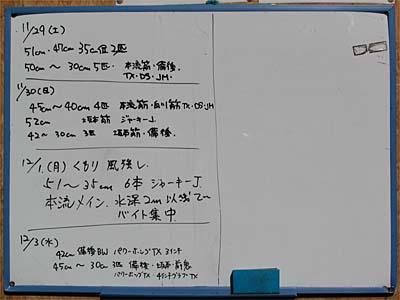 11/29(土)
51cm・47cm 35cm位 3匹
50cm～30cm 5匹・本流筋・備後・
TX・DS・JM・
11/30(日)
45cm～40cm 4匹 本流筋・白川筋・TX・DS・JM
52cm 坂本筋 ジャーキーJ
42～30cm 3匹 坂本筋・備後・
12/1.(月) くもり 風強し.
51～35cm 6本 ジャーキーJ.
本流メイン. 水深2m以浅で
バイト集中
12/3(水)
42cm 備後BW パワーホッグTX 3インチ
45cm～30cm 3匹 備後・坂本・前島
パワーホッグTX 4インチグラブTX